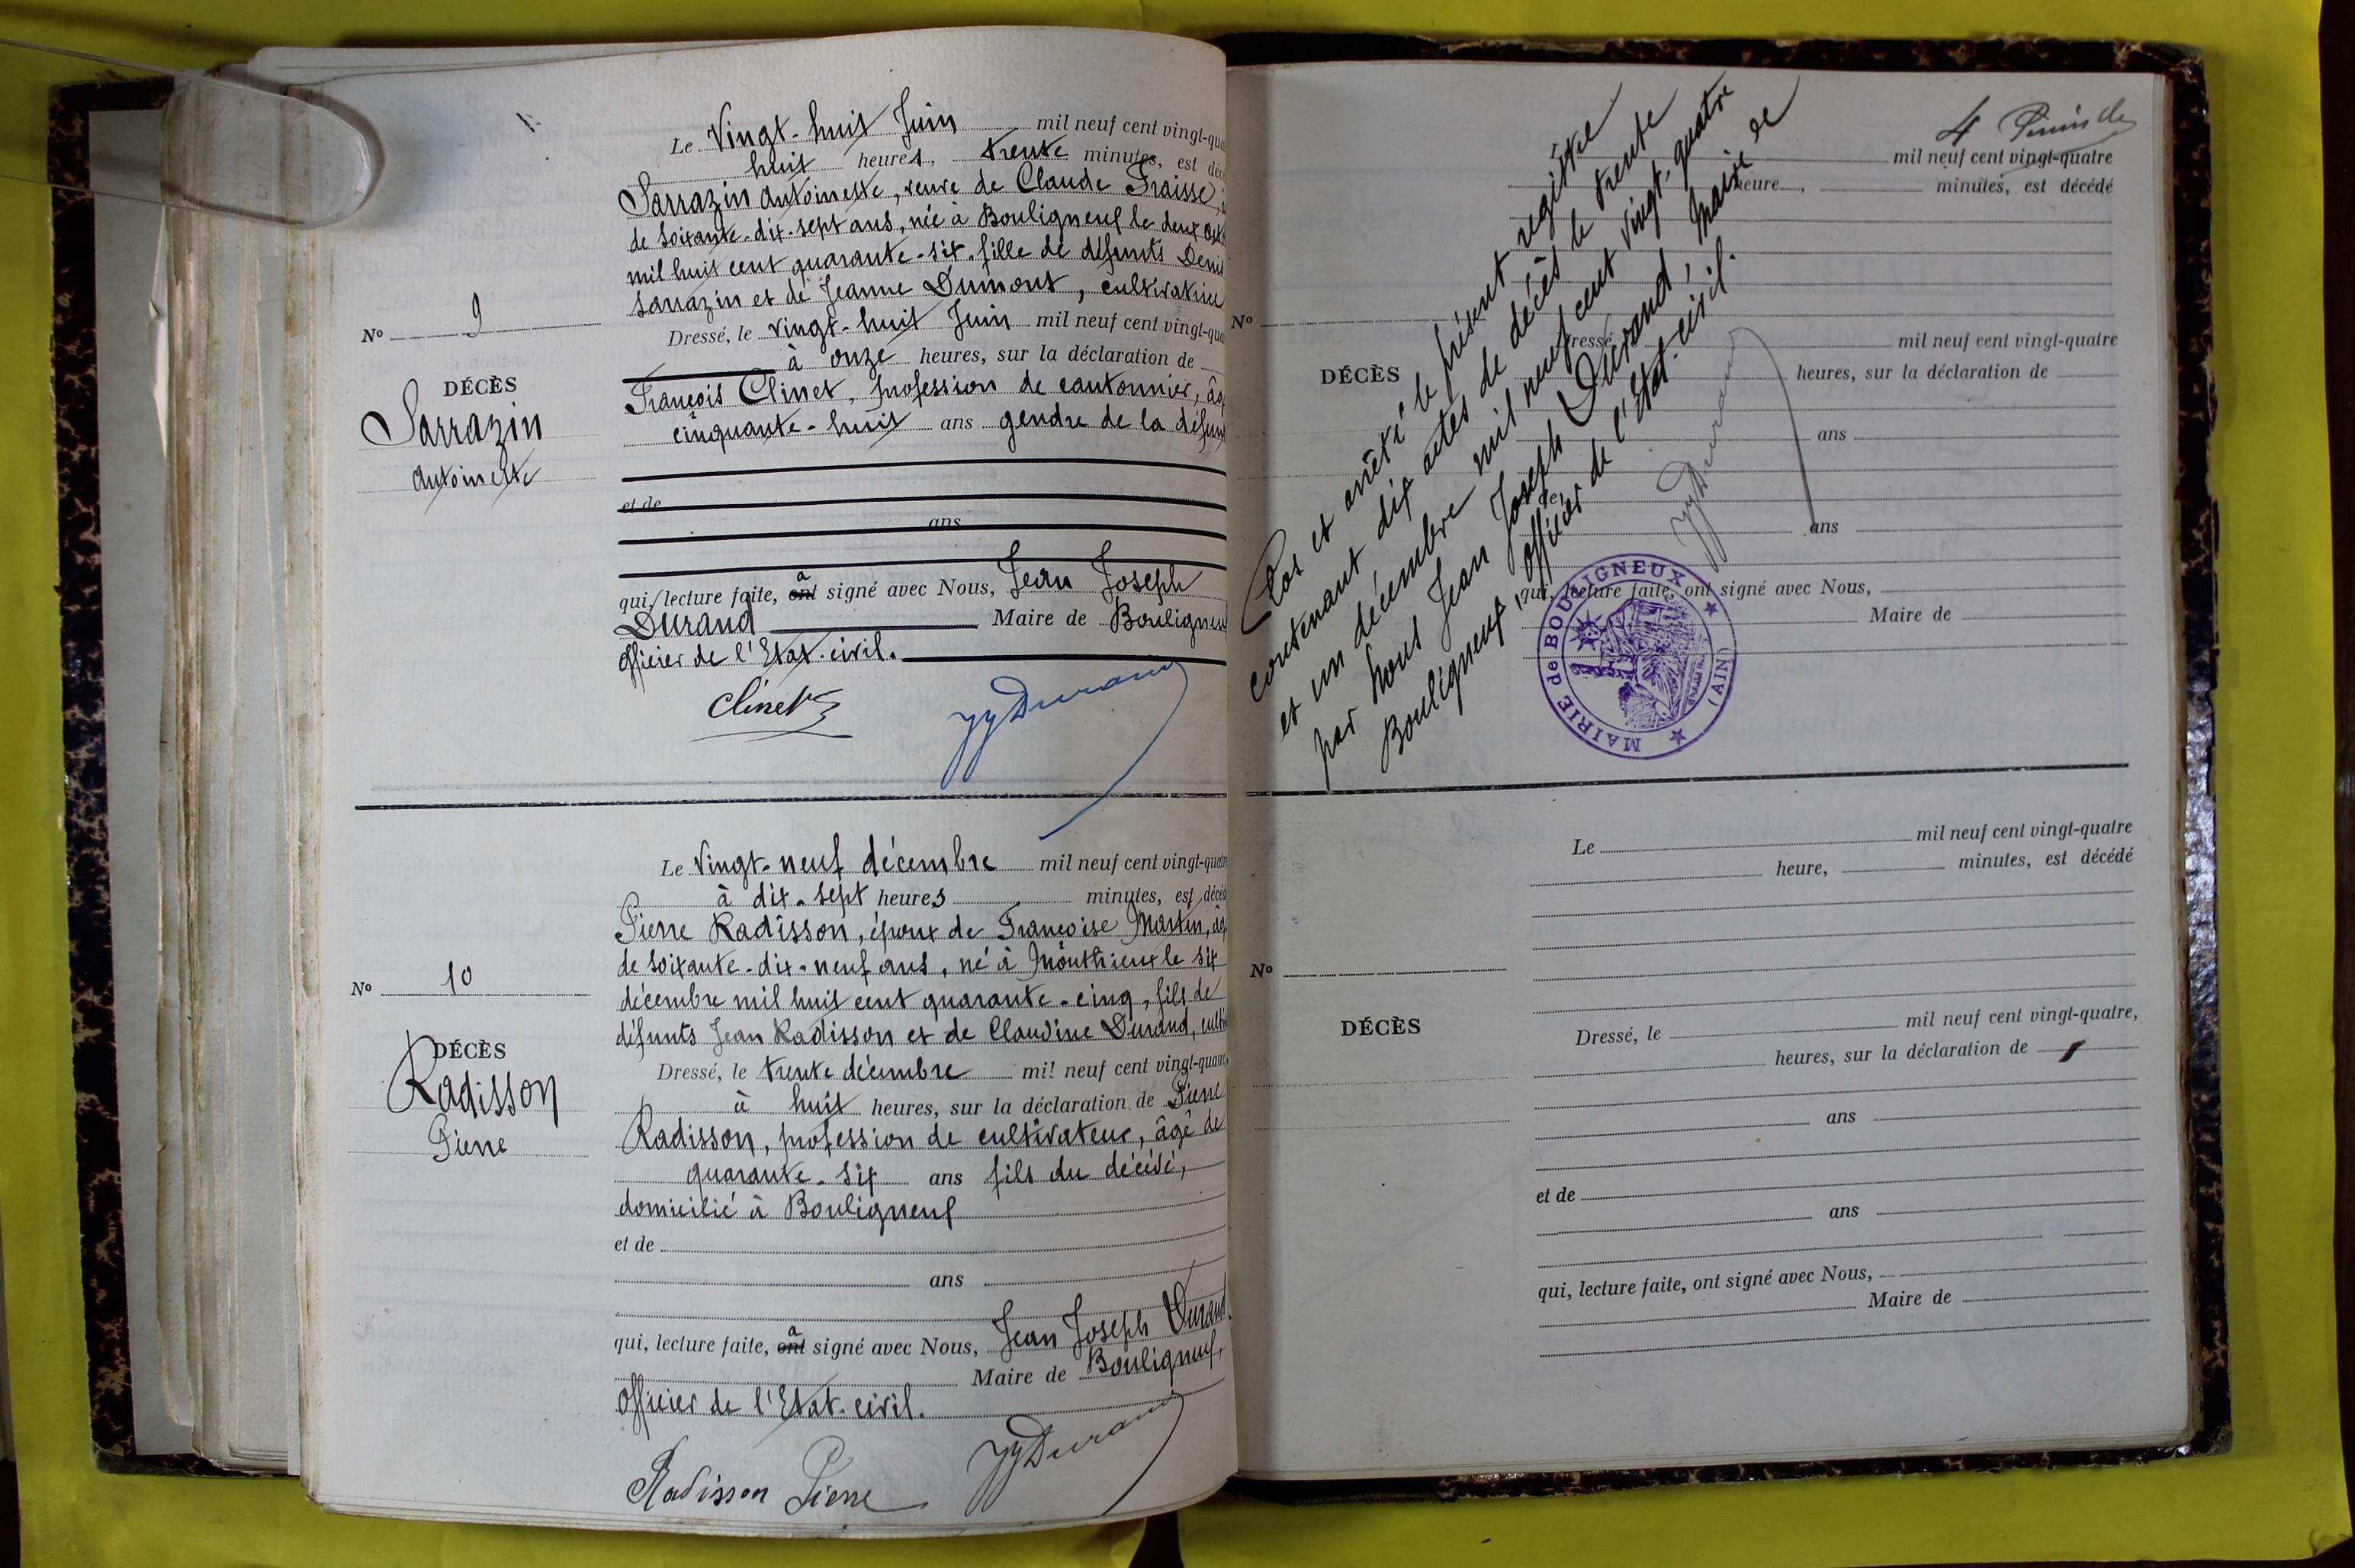 Le Vingt-huit Juin mil neuf cent vingt-qua
huit heures, trente minutes, est décé
Sarrazin Antoinette, veuve de Claude Fraisse,
de soixante-dix-sept ans, née à Bouligneux le deux Oct
mil huit cent quarante-six, fille de défunts Denis
Sarrazin et de Jeanne Dumont, cultivatrice
No 9
Dressé, le vingt-huit Juin mil neuf cent vingt-qua
à onze heures, sur la déclaration de
DÉCÈS
François Clinet, profession de cantonnier, âg
Sarrazin
cinquante-huit ans gendre de la défun
Antoinette
et de
ans
qui, lecture faite, ont a signé avec Nous, Jean Joseph
Durand Maire de Bouligneu
officier de l'Etat-civil.
Clinet JJ Durand
Le Vingt-neuf décembre mil neuf cent vingt-quatre
à dix-sept heures minutes, est décéd
Pierre Radisson, époux de Françoise Martin, âg
de soixante-dix-neuf ans, né à Monthieux le six
No 10
décembre mil huit cent quarante-cinq, fils de
défunts Jean Radisson et de Claudine Durand, culti
DÉCÈS
Dressé, le trente décembre mil neuf cent vingt-quatre
Radisson
à huit heures, sur la déclaration de Pierre
Pierre
Radisson, profession de cultivateur, âgé de
quarante-six ans fils du décédé,
domicilié à Bouligneux
et de
ans
qui, lecture faite, ont a signé avec Nous, Jean Joseph Durand
Maire de Bouligneux,
officier de l'Etat-civil.
Radisson Pierre JJ Durand
4
mil neuf cent vingt-quatre
heure, minutes, est décédé
No
Dressé mil neuf cent vingt-quatre
DÉCÈS
heures, sur la déclaration de
ans
de
ans
qui, lecture faite, ont signé avec Nous,
Maire de
Clos et arrêté le présent registre
contenant dix actes de décès le trente
et un décembre mil neuf cent vingt-quatre
par nous Jean Joseph Durand, Maire de
Bouligneux, officier de l'Etat-civil.
JJ Durand
MAIRIE de BOULIGNEUX (AIN)
Le mil neuf cent vingt-quatre
heure, minutes, est décédé
No
DÉCÈS
Dressé, le mil neuf cent vingt-quatre,
heures, sur la déclaration de
ans
et de
ans
qui, lecture faite, ont signé avec Nous,
Maire de